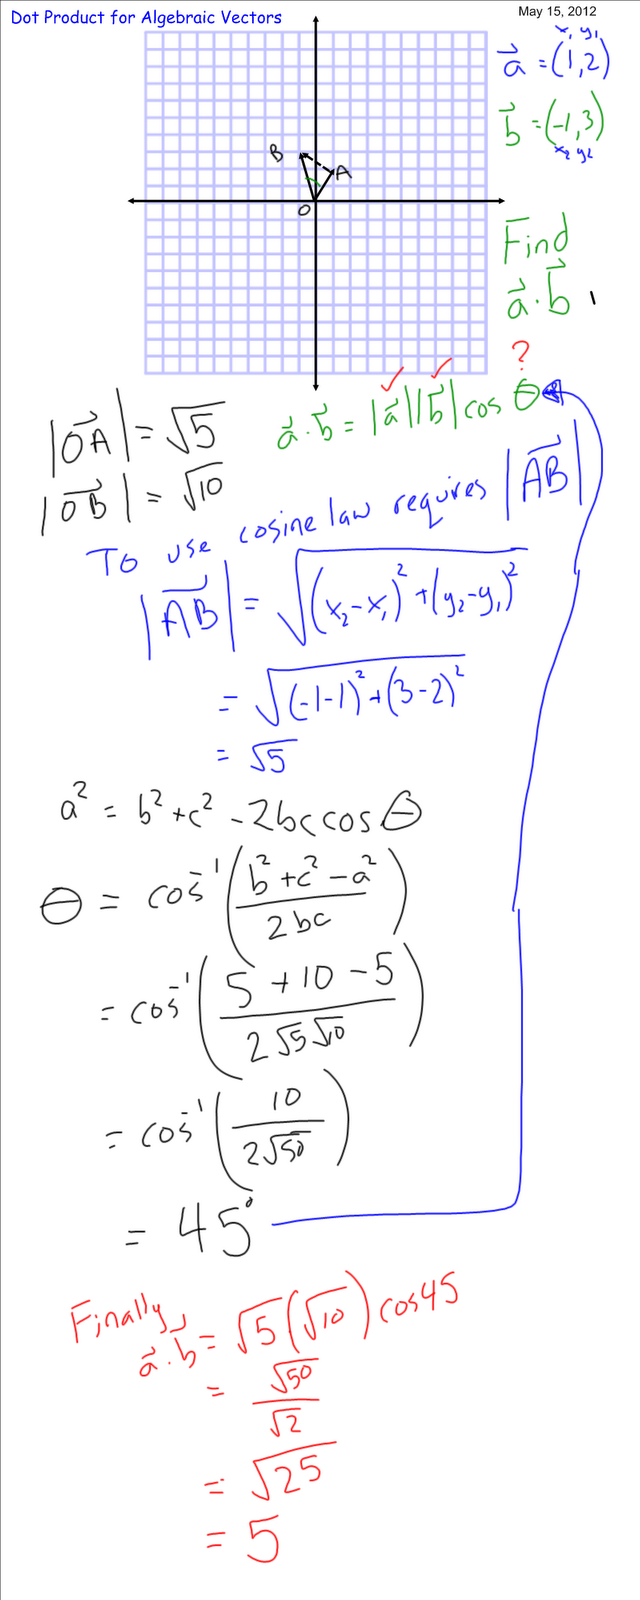 Dot Product for Algebraic Vectors
May 15, 2012
x₁ y₁
a⃗ = (1, 2)
b⃗ = (-1, 3)
x₂ y₂
B
A
O
Find
a⃗ · b⃗
?
a⃗ · b⃗ = |a⃗||b⃗| cos θ
|OA⃗| = √5
|OB⃗| = √10
To use cosine law requires |AB⃗|
|AB⃗| = √((x₂-x₁)² + (y₂-y₁)²)
= √((-1-1)² + (3-2)²)
= √5
a² = b² + c² - 2bc cos θ
θ = cos⁻¹((b² + c² - a²)/(2bc))
= cos⁻¹((5 + 10 - 5)/(2√5√10))
= cos⁻¹(10/(2√50))
= 45°
Finally,
a⃗ · b⃗ = √5(√10) cos45
= √50/√2
= √25
= 5